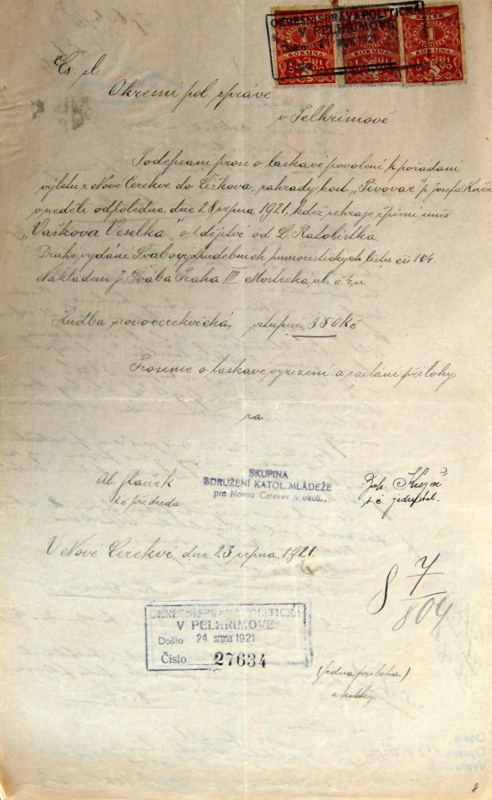 OKRESNÍ SPRÁVA POLITICKÁ
V PELHŘIMOVĚ
1
KORUNA
Čs. sl.
Okresní pol. správě
v Pelhřimově
Podepsaní prosí o laskavé povolení k pořádání
výletu z Nové Cerekve do Čížkova, zahrady host. „Pivovar" p. Josefa
v neděli odpoledne dne 28 srpna 1921, kdež sehraje zpěvní
„Vaškova Veselka" o 1 dějství od L. Ratolístka
Druhé vydání Švábových hudebních humoristických listů čís 104.
Nákladem J. Švába Praha III Mostecká ul. č.
Hudba novocerekvická, vstupné 350 Kč
Prosíme o laskavé vyřízení a zaslání přílohy
za
SKUPINA
SDRUŽENÍ KATOL. MLÁDEŽE
pro Novou Cerekev a okolí.
t. č. předseda
t. č. jednatel.
V Nové Cerekvi dne 23 srpna 1921.
8 7/804
OKRESNÍ SPRÁVA POLITICKÁ
V PELHŘIMOVĚ
Došlo 24. srpna 1921
Číslo 27634
(jedna příloha)
a kolky
8